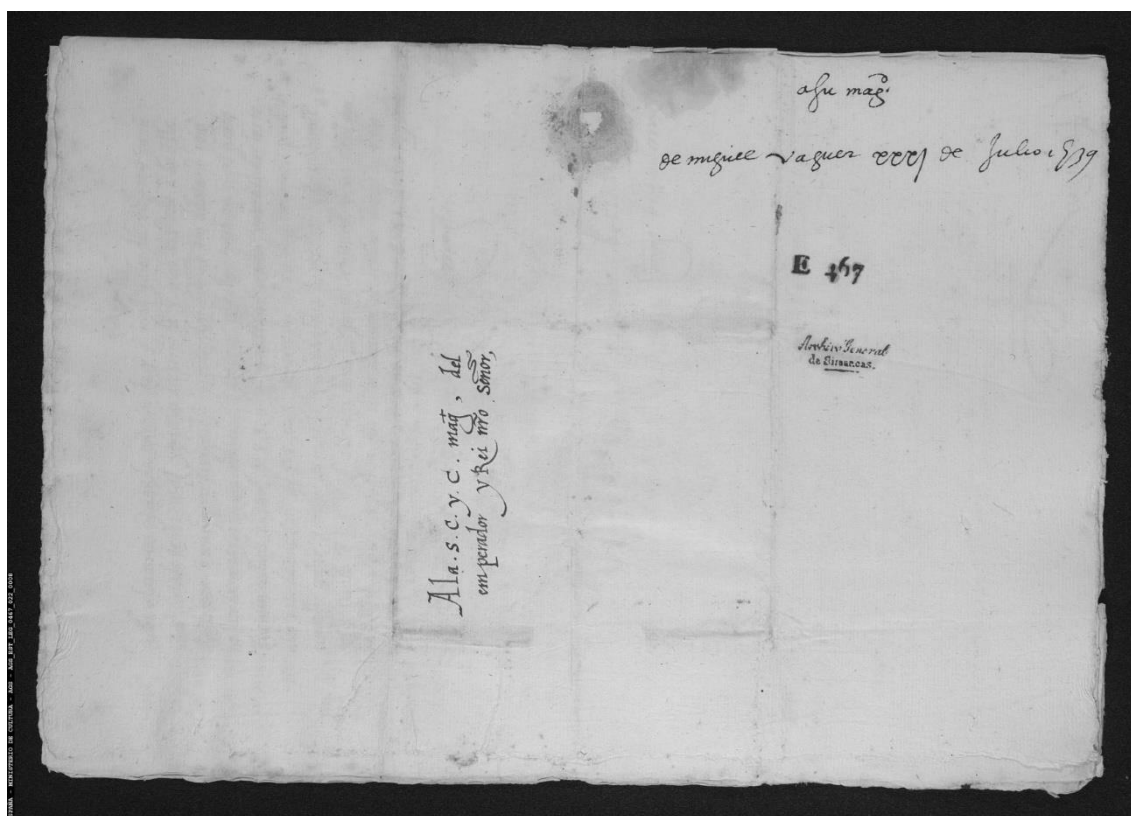 a su mag.
de miguel vaguer xxxj de Julio 1539
E 467
Archivo General
de Simancas.
A la . s . c . y . c . mag.t , del
emperador y Rei nro señor,
ESPAÑA - MINISTERIO DE CULTURA - AGS - AGS_EST_LEG_0467_022_0008